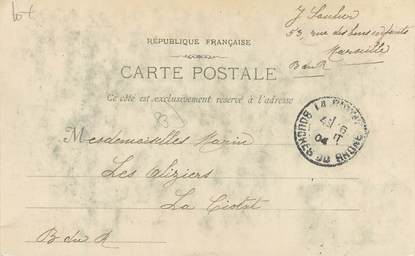 J Saulier
53, rue des bons enfants
Marseille
B du R
RÉPUBLIQUE FRANÇAISE
CARTE POSTALE
Ce côté est exclusivement réservé à l'adresse
83
Mesdemoiselles Marin
Les Aliziers
La Ciotat
B du R
LA CIOTAT
04
BOUCHES DU RHONE